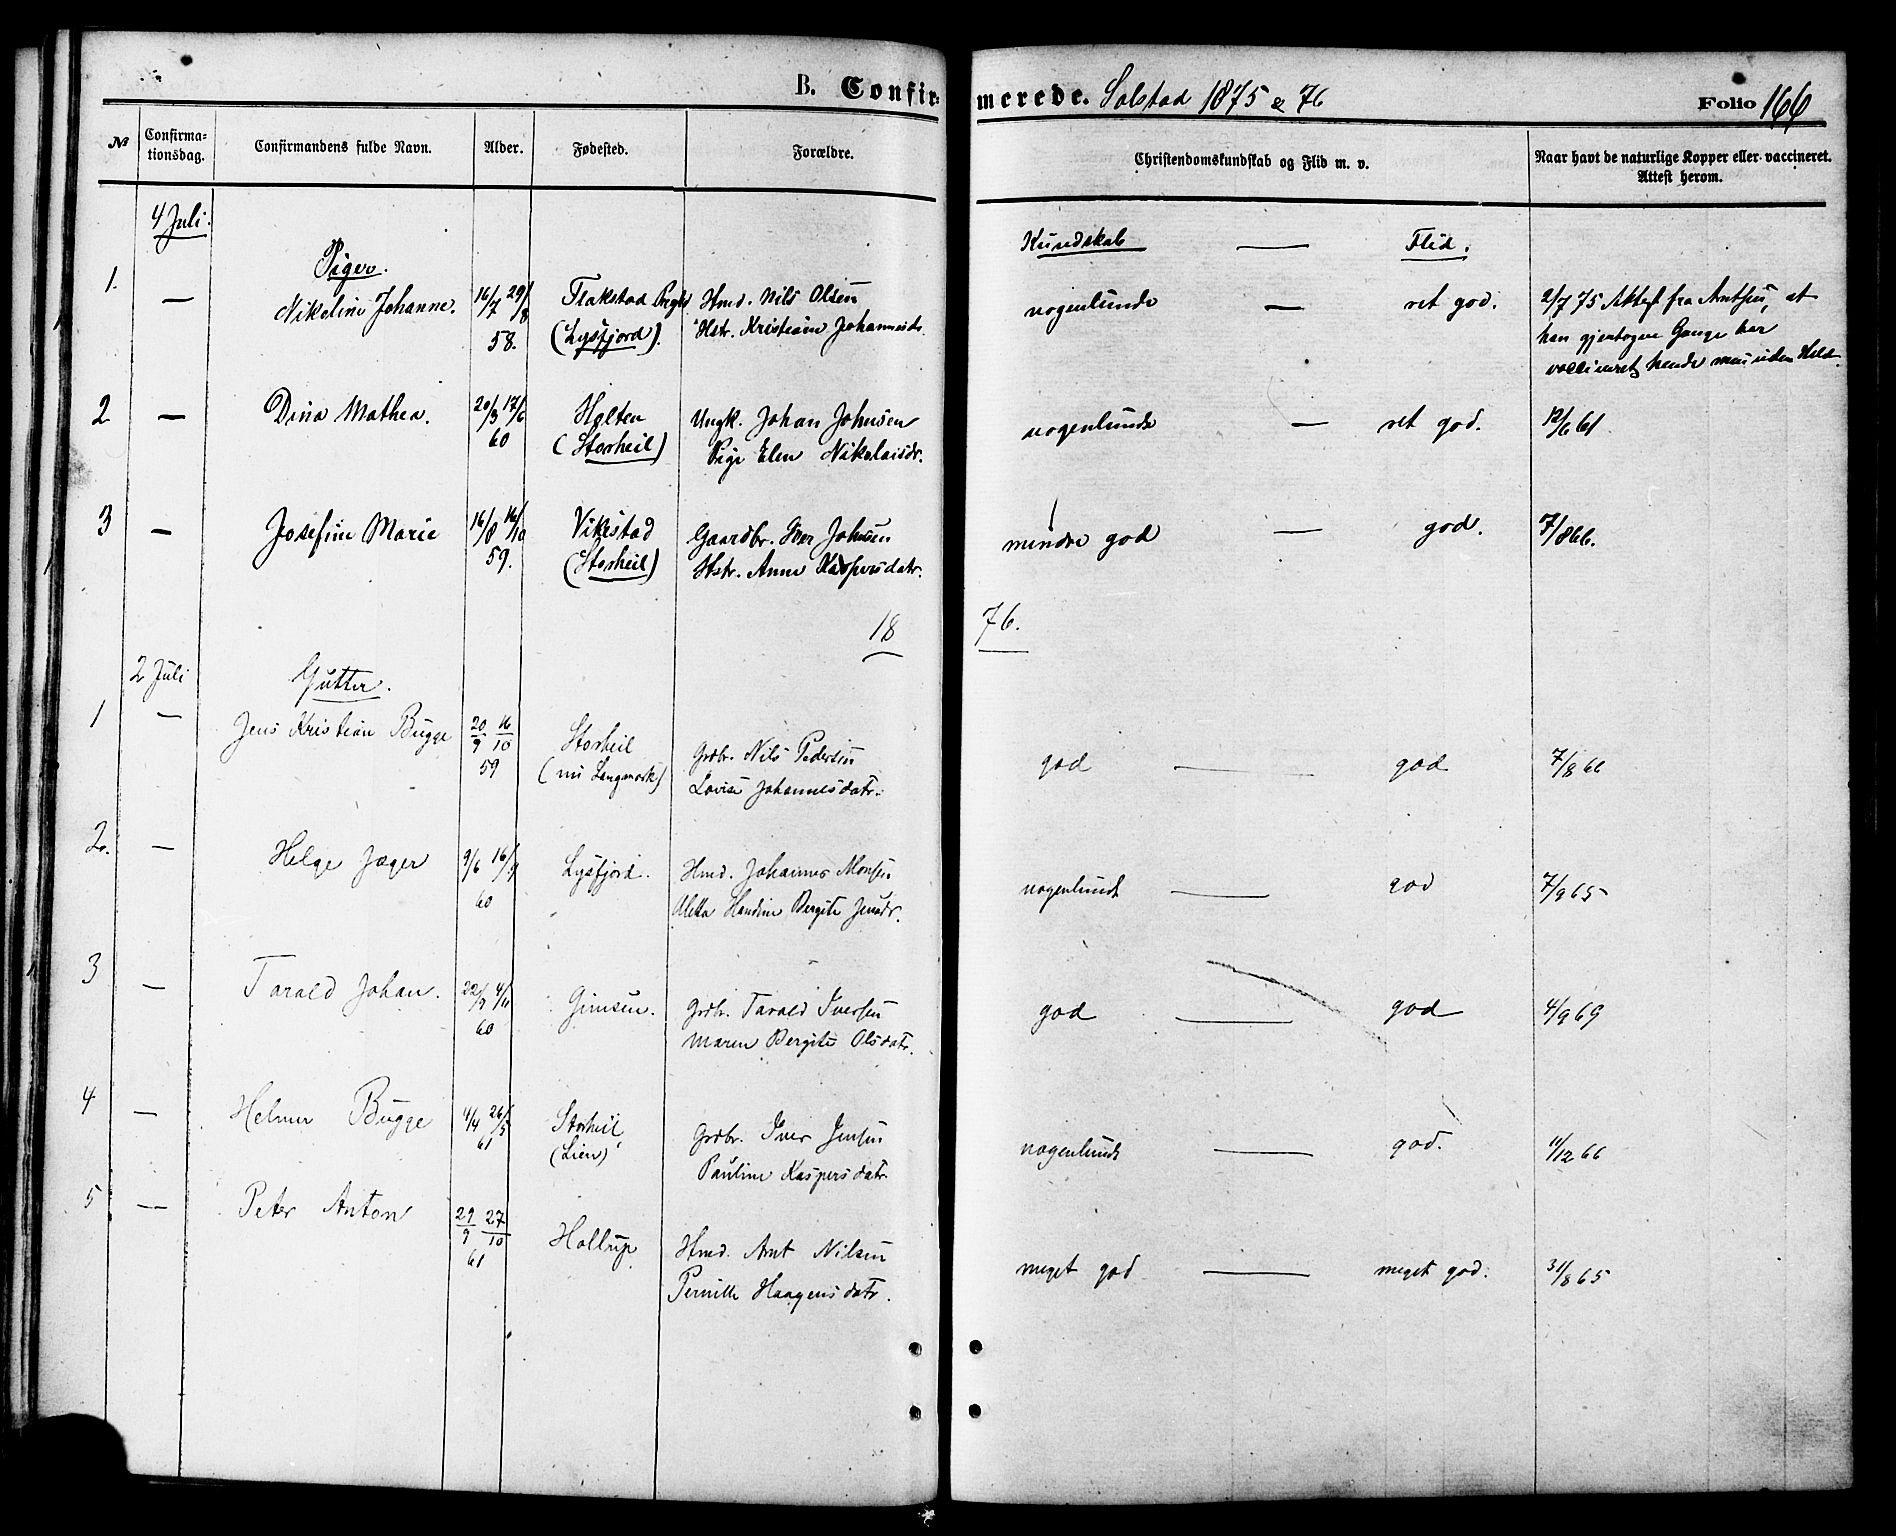 B. Confirmerede. Solstad 1875 & 76
Folio 166
№
Confirmationsdag.
Confirmandens fulde Navn.
Alder.
Fødested.
Forældre.
Christendomskundskab og Flid m. v.
Naar havt de naturlige Kopper eller vaccineret.
Attest herom.
4 Juli.
Piger.
Kundskab — Flid.
1. — Nikeline Johanne. 16/7 29/8 58. (Lysfjord). Hmd. Nils Olsen
Hstr. Kristiane Johannesdr.
nogenlunde — ret god. 2/7 75 Attest fra Arntsen, at
han gjentagne Gange har
vaccineret hende men uden Held.
2 — Dina Mathea. 20/3 17/6 60 Holten (Storheil) Ungk. Johan Johnsen
Pige Elen Nikolaisdr.
nogenlunde — ret god. 12/6 61
3 — Josefine Marie 16/8 16/10 59. Vikestad (Storheil) Gaardbr. Iver Johnsen
Hstr. Anne Kaspersdatr.
mindre god — god. 7/8 66.
18 76.
2 Juli
Gutter.
1 — Jens Kristian Bugge 20/9 16/10 59 Storheil (nu Langmork) Grdbr. Nils Pedersen
Lovise Johannesdatr.
god — god 7/8 66
2. — Helge Jæger 9/6 16/9 60 Lysfjord. Hmd. Johannes Monsen
Aletta Handine Bergite Jensdr.
nogenlunde — god 7/9 65
3 — Tarald Johan. 60 Gimsen. Grdbr. Tarald Iversen
Maren Bergite Olsdatr.
god — god 4/9 69
4 — Helmer Bugge 4/4 26/5 61 Storheil (Lien) Grdbr. Iver Jensen
Pauline Kaspersdatr
nogenlunde — god. 11/12 66
5 — Peter Anton 29/9 27/10 61 Hollup Hmd. Arnt Nilsen
Pernille Haagensdatr.
meget god — meget god. 31/8 65